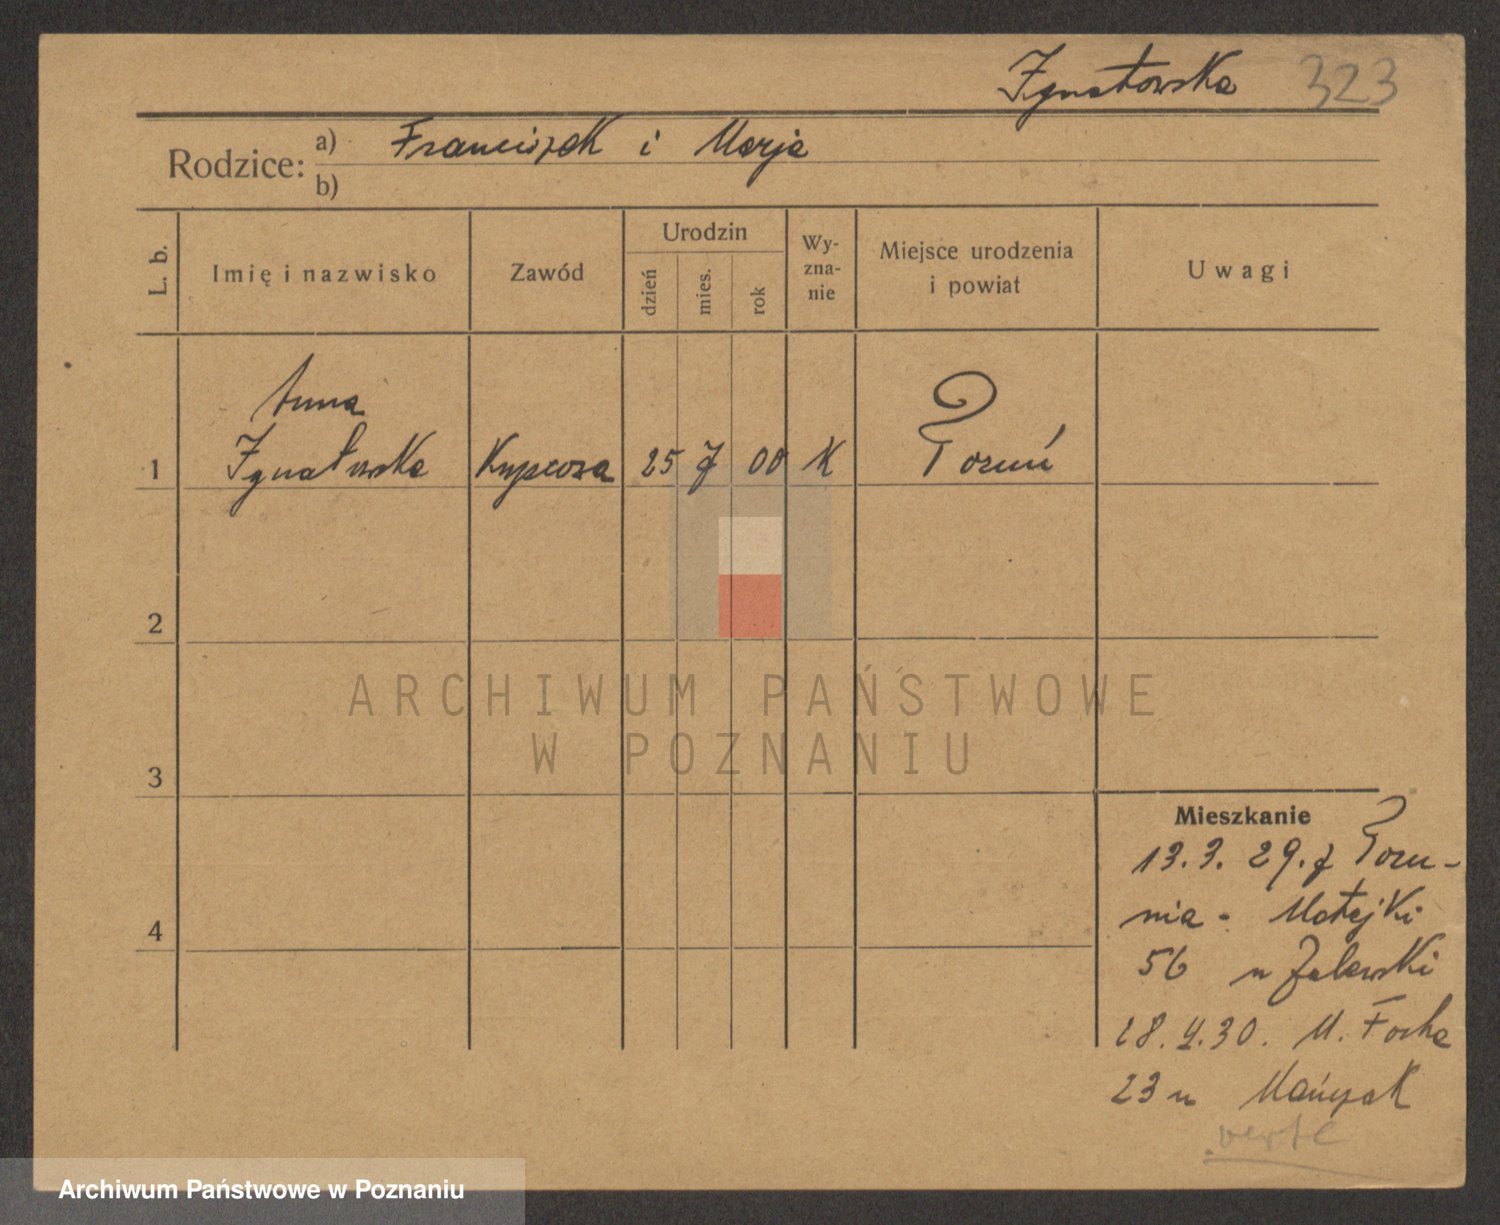 Ignatowska 323
Rodzice: a) Franciszek i Marja
b)
L. b.
Imię i nazwisko
Zawód
Urodzin
dzień
mies.
rok
Wy-
zna-
nie
Miejsce urodzenia
i powiat
Uwagi
Anna
1 Ignatowska Kupcowa 25 7 00 K Toruń
2
ARCHIWUM PAŃSTWOWE
W POZNANIU
3
Mieszkanie
13.3.29. z Toru-
nia - Matejki
56 u Zalewski
4
28. 30. M. Focha
23 u Mańczak
verte
Archiwum Państwowe w Poznaniu